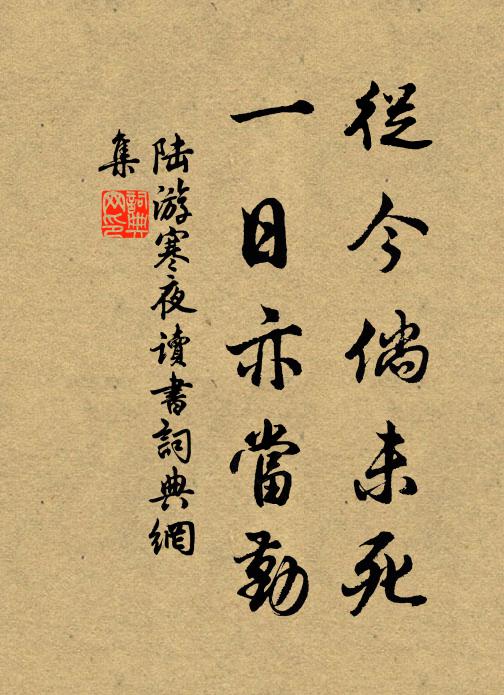 從今倘未死
一日亦當勤
陆游寒夜讀書詞典網
集
詞典
网印